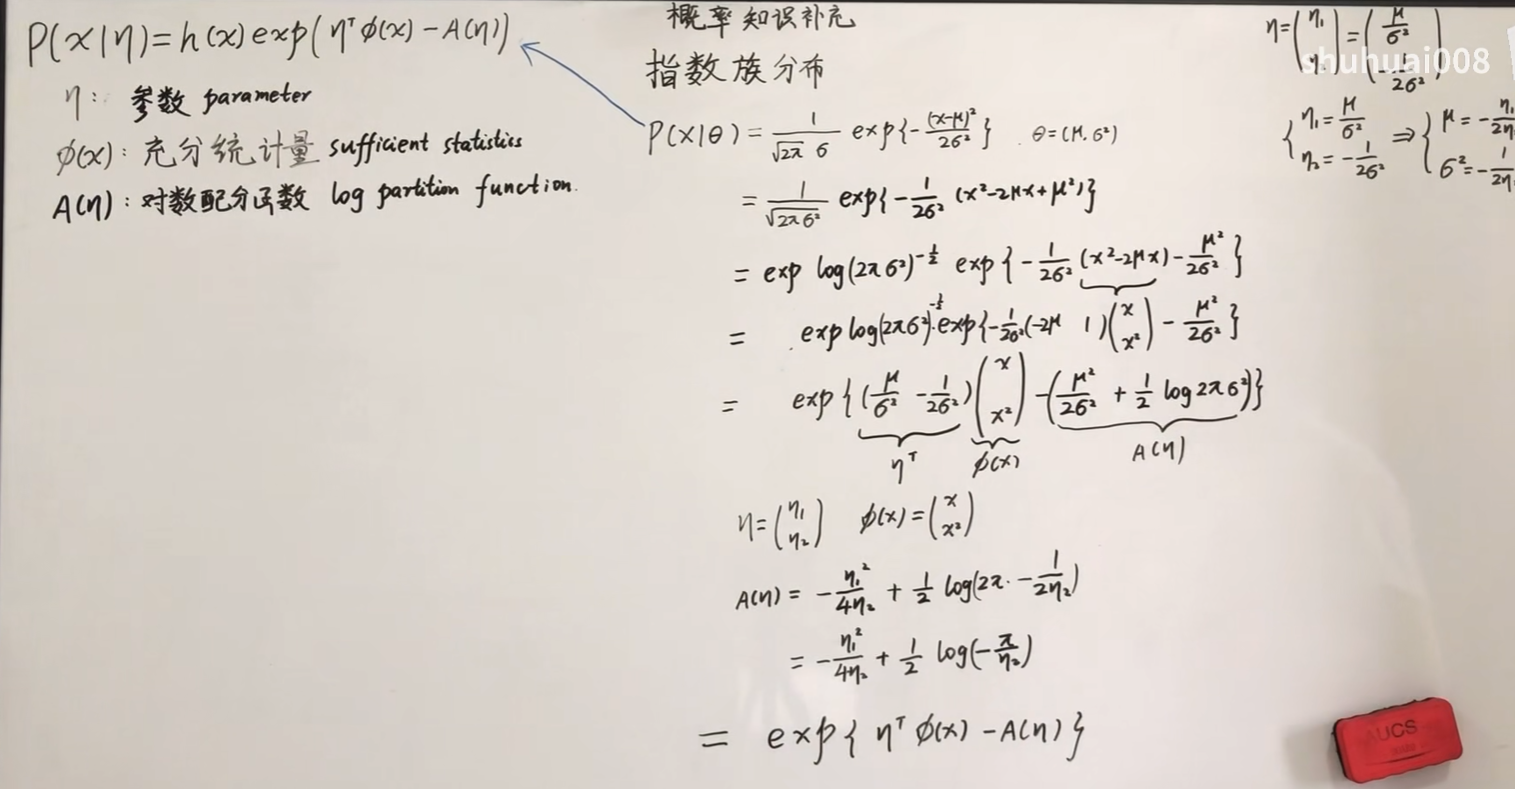 P(x|η)=h(x)exp(ηᵀφ(x)-A(η))
η: 参数 parameter
φ(x): 充分统计量 sufficient statistics
A(η): 对数配分函数 log partition function.
概率知识补充
指数族分布
P(x|θ) = 1/(√2π σ) exp{-(x-μ)²/2σ²} . θ=(μ.σ²)
= 1/√2πσ² exp{-1/2σ² (x²-2μx+μ²)}
= exp log(2πσ²)^-1/2 exp{-1/2σ² (x²-2μx)-μ²/2σ²}
= exp log(2πσ²)^-1/2·exp{-1/2σ²(-2μ 1)(x x²) - μ²/2σ²}
= exp{(μ/σ² -1/2σ²)(x x²) -(μ²/2σ² + 1/2 log2πσ²)}
ηᵀ φ(x) A(η)
η=(η₁ η₂) φ(x)=(x x²)
A(η) = -η₁²/4η₂ + 1/2 log(2π·-1/2η₂)
= -η₁²/4η₂ + 1/2 log(-π/η₂)
= exp{ηᵀφ(x) -A(η)}
η=(η₁ )=(μ/σ² -1/2σ²)
shuhuai008
{η₁=μ/σ² η₂=-1/2σ² ⇒ {μ=-η₁/2η σ²=-1/2η
AUCS